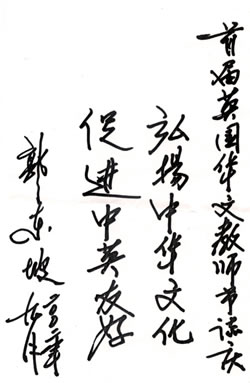 首届英国华文教师节誌庆
弘揚中华文化
促進中英友好
郭东坡